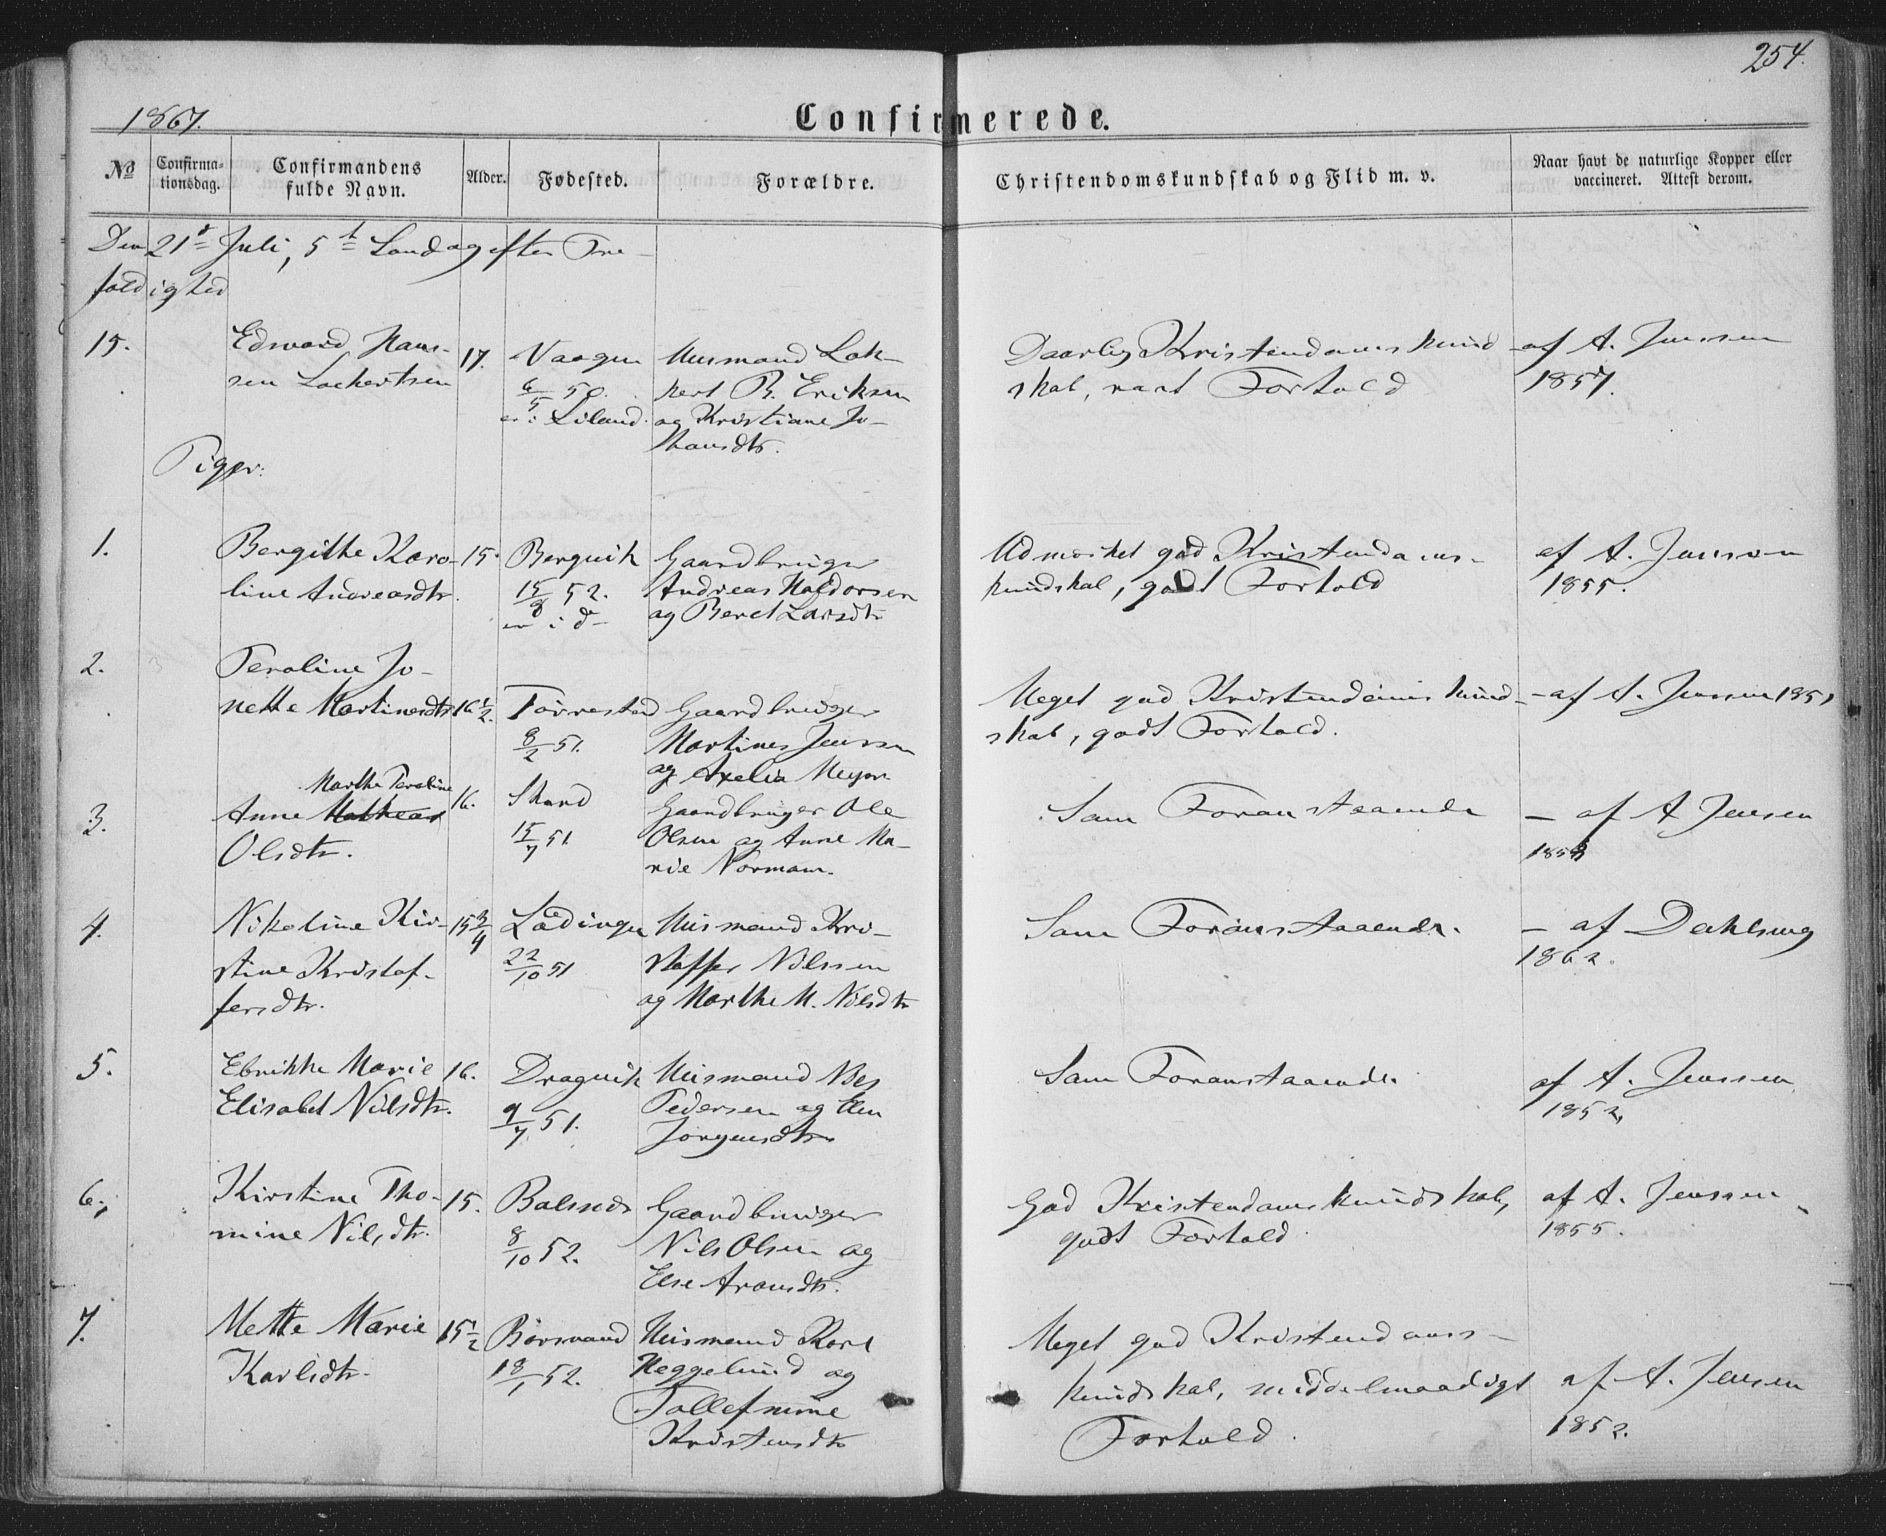 254.
1867.
Confirmerede.
No
Confirma-
tionsdag.
Confirmandens
fulde Navn.
Alder.
Fødested.
Forældre.
Christendomskundskab og Flid m. v.
Naar havt de naturlige Kopper eller
vaccineret. Attest derom.
Den 21de Juli, 5te Søndag efter Tre-
foldighed
15.
Edward Hans-
sen Lockertsen
17.
Vaagen
6/5 50.
er i Liland.
Husmand Lok-
kert B. Eriksen
og Kristiane Jo-
hansdtr.
Daarlig Kristendomskund-
skab, vant Forhold
af A. Jenssen
1857.
Piger.
1.
Bergithe Karo-
line Andreasdtr.
15.
Bergvik
15/8 52.
er i do
Gaardbruger
Andreas Haldorsen
og Beret Larsdtr
Udmærket god Kristendoms-
kundskab, godt Forhold
af A. Jenssen
1855.
2.
Peroline Jo-
nette Martinesdtr
16 1/2.
Taarestad
8/2 51.
Gaardbruger
Martines Jenssen
og Axelia Meyer
Meget god Kristendomskund-
skab, godt Forhold.
- af A. Jenssen 1851
3.
Marthe Peroline
Anne Mathea
Olsdtr.
16.
Skard
15/7 51
Gaardbruger Ole
Olsen og Anne Ma-
rie Normann.
Som Foranstaaende
- af A Jensen
1853
4.
Nikoline Kir-
stine Kristof-
fersdtr.
15 3/4
Lødingen
22/10 51
Husmand Kri-
stoffer Nilssen
og Marthe M. Nilsdtr
Som Foranstaaende.
- af Dahlsney
1862.
5.
Ebrikke Marie
Elisabet Nilsdtr.
16.
Dragvik
9/7 51.
Husmand Nils
Pedersen og Elen
Jørgensdtr
Som Foranstaaende.
af A. Jenssen
1852,
6.
Kirstine Tho-
mine Nilsdtr.
15.
Balsnes
8/10 52.
Gaardbruger
Nils Olsen og
Else Aronsdtr.
God Kristendomskundskab,
godt Forhold
af A. Jenssen
1855.
7.
Mette Marie
Karlsdtr.
15 1/2
Børsvand
18/1 52.
Husmand Karl
Heggelund og
Tollefmine
Kristensdtr
Meget god Kristendoms-
kundskab, middelmaadigt
Forhold.
af A. Jensen
1852.